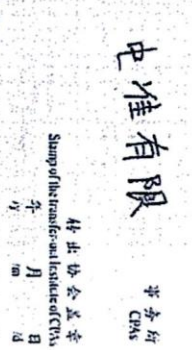 中准有限
事务所
CPAs
转出协会盖章
Stamp of the transfer-out Institute of CPAs
年 月 日
/y /m /d